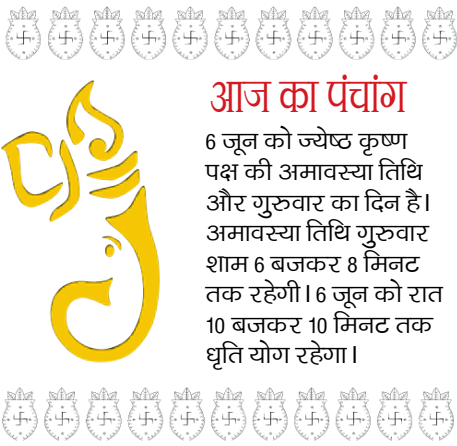 आज का पंचांग
6 जून को ज्येष्ठ कृष्ण
पक्ष की अमावस्या तिथि
और गुरुवार का दिन है।
अमावस्या तिथि गुरुवार
शाम 6 बजकर 8 मिनट
तक रहेगी। 6 जून को रात
10 बजकर 10 मिनट तक
धृति योग रहेगा।